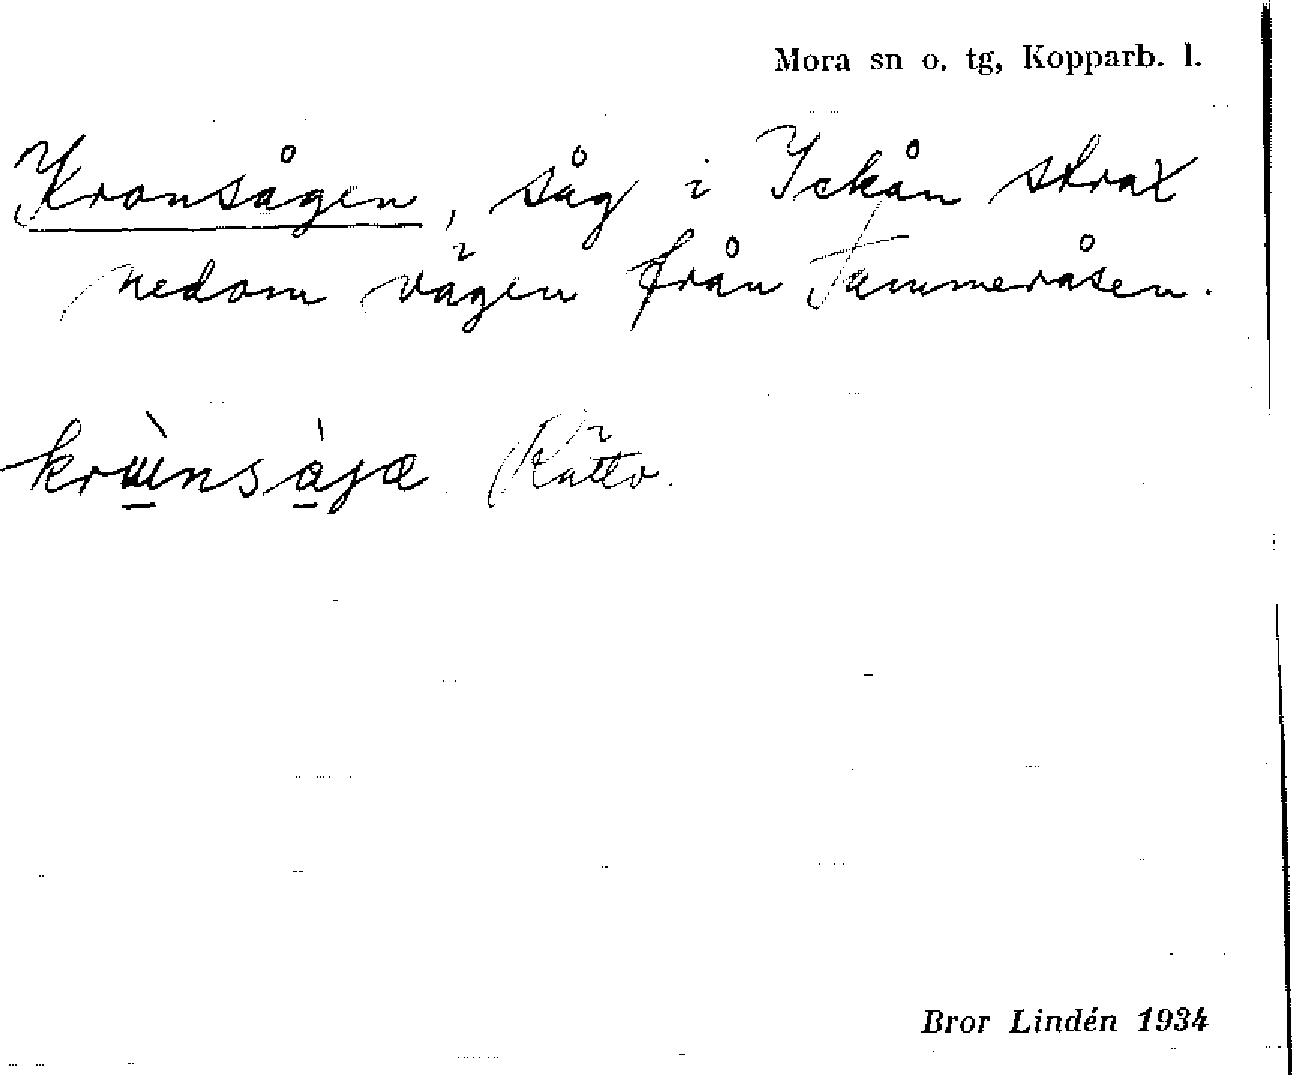 Mora sn o. tg, Kopparb. l.
Kronsågen, såg i Ickån strax
nedom vägen från Tammeråsen.
krɯ̀nsàjæ Kättbo.
Bror Lindén 1934